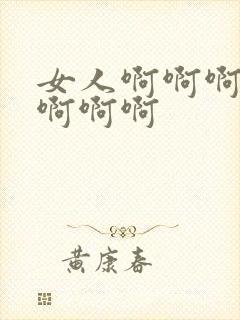 女人啊啊啊
啊啊啊
黄康春